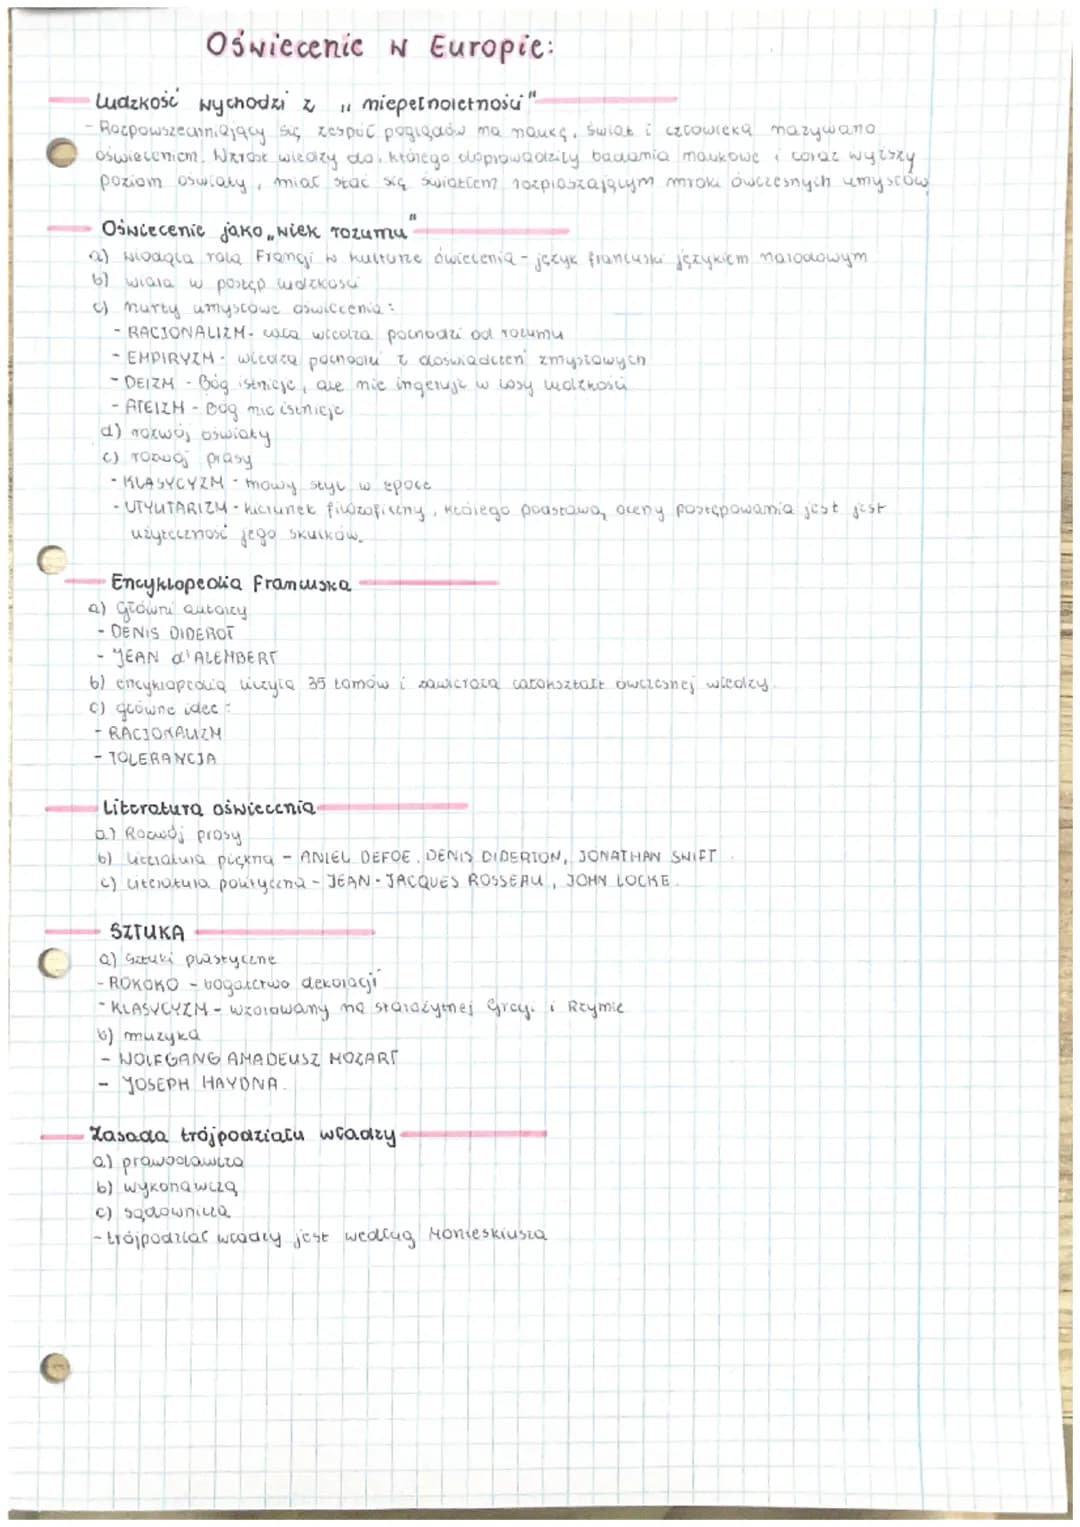 Oświecenie w Europie:
Ludzkość wychodzi z „niepełnoletności"
- Rozpowszechniający się zespół poglądów na naukę, świat i człowieka nazywano
oświeceniem. Wzrost wiedzy do, którego doprowadziły badania naukowe i coraz wyższy
poziom oświaty, miał stać się światłem rozpraszającym mroki ówczesnych umysłów
Oświecenie jako „wiek rozumu"
a) wiodąca rola Francji w kulturze oświecenia - język francuski językiem narodowym
b) wiara w postęp ludzkości
c) nurty umysłowe oświecenia:
- RACJONALIZM - cała wiedza pochodzi od rozumu
- EMPIRYZM - wiedza pochodzi z doświadczeń zmysłowych
- DEIZM - Bóg istnieje, ale nie ingeruje w losy ludzkości
- ATEIZM - Bóg nie istnieje
d) rozwój oświaty
e) rozwój prasy
- KLASYCYZM - nowy styl w epoce
- UTYLITARIZM - kierunek filozoficzny, którego podstawą oceny postępowania jest jest
użyteczność jego skutków.
Encyklopedia Francuska
a) Główni autorzy
- DENIS DIDEROT
- JEAN d'ALEMBERT
b) encyklopedia liczyła 35 tomów i zawierała całokształt ówczesnej wiedzy.
c) główne idee:
- RACJONALIZM
- TOLERANCJA
Literatura oświecenia
a.) Rozwój prasy
b) literatura piękna - ANIEL DEFOE, DENIS DIDERTON, JONATHAN SWIFT.
c) literatura polityczna - JEAN-JACQUES ROSSEAU, JOHN LOCKE.
SZTUKA
a) Sztuki plastyczne
- ROKOKO - bogactwo dekoracji
- KLASYCYZM - wzorowany na starożytnej Grecji i Rzymie
b) muzyka
- WOLFGANG AMADEUSZ MOZART
- JOSEPH HAYDNA.
Zasada trójpodziału władzy
a.) prawodawcza
b) wykonawcza
c) sądownicza
- trójpodział władzy jest według Monteskiusza